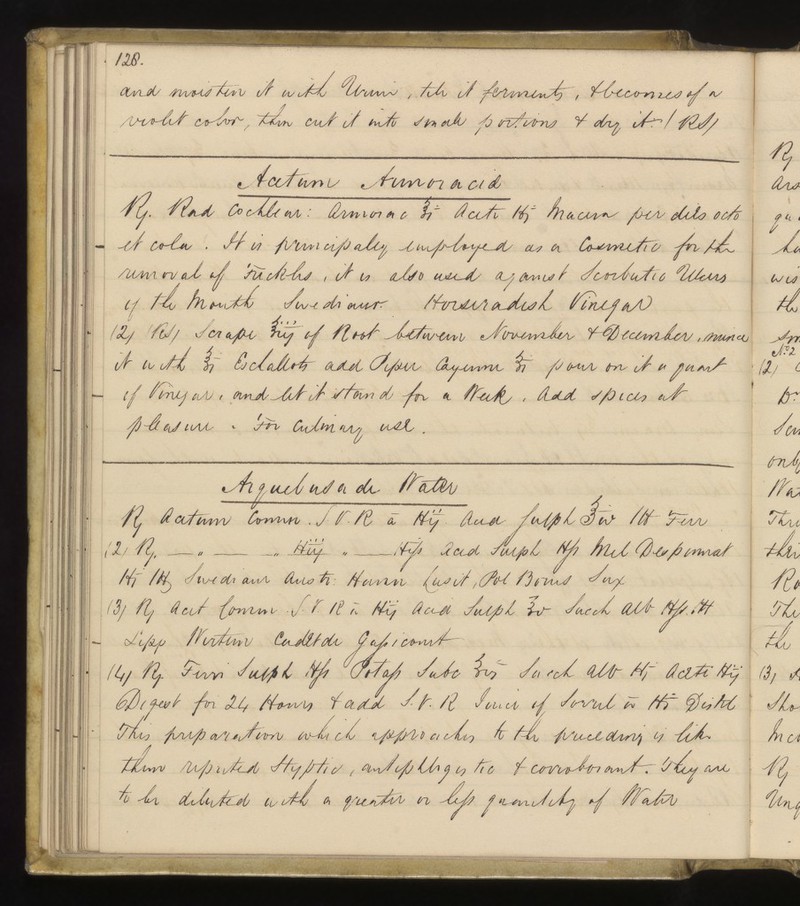 128.
and moisten it with Urine, till it ferments, & becomes of a
violet color, then cut it into small portions & dry it. (RS)
Acetum Armoracid
Rj. Rad Cochlear: Armorac ℥i Aceti ℔j Macera per dies octo
et cola. It is principally employed as a Cosmetic for the
removal of Freckles, it is also used against Scorbutic Ulcers
of the Mouth Swediaur Horseradish Vinegar
(2) (RS) Scrape ℥iij of Root between November & December, mince
it with ℥i Eschallots add Piper Cayenne ℥i pour on it a quart
of Vinegar, and let it stand for a Week. Add spices at
pleasure. For Culinary use.
Arquebusade Water
Rj Acetum Commn. S.V.R ā ℔ij Acid Sulph ℥iv Ferr
(2) Rj. — " — " ℔iij " — ℔jſs Acid Sulph ℔ſs Mel Despumat
℔j Swediaur Austr: Hannov Lusit, Pol Boruss Sax
(3) Rj Acet Commn. S.V.R ā ℔ij Acid Sulph ℥v Sacch Alb ℔ſs.
Lipp Wirtem Cadet de Gassicourt
(4) Rj Ferri Sulph ℔ſs Potass Subc ℥vi Sacch Alb ℔j Aceti ℔ij
Digest for 24 Hours & add S.V.R Juice of Sorrel ā ℔j Distil
This preparation which approaches to the preceding is like
them reputed Styptic, antiphlogistic & corroborant. They are
to be diluted with a greater or less quantity of Water
Rj
Rj